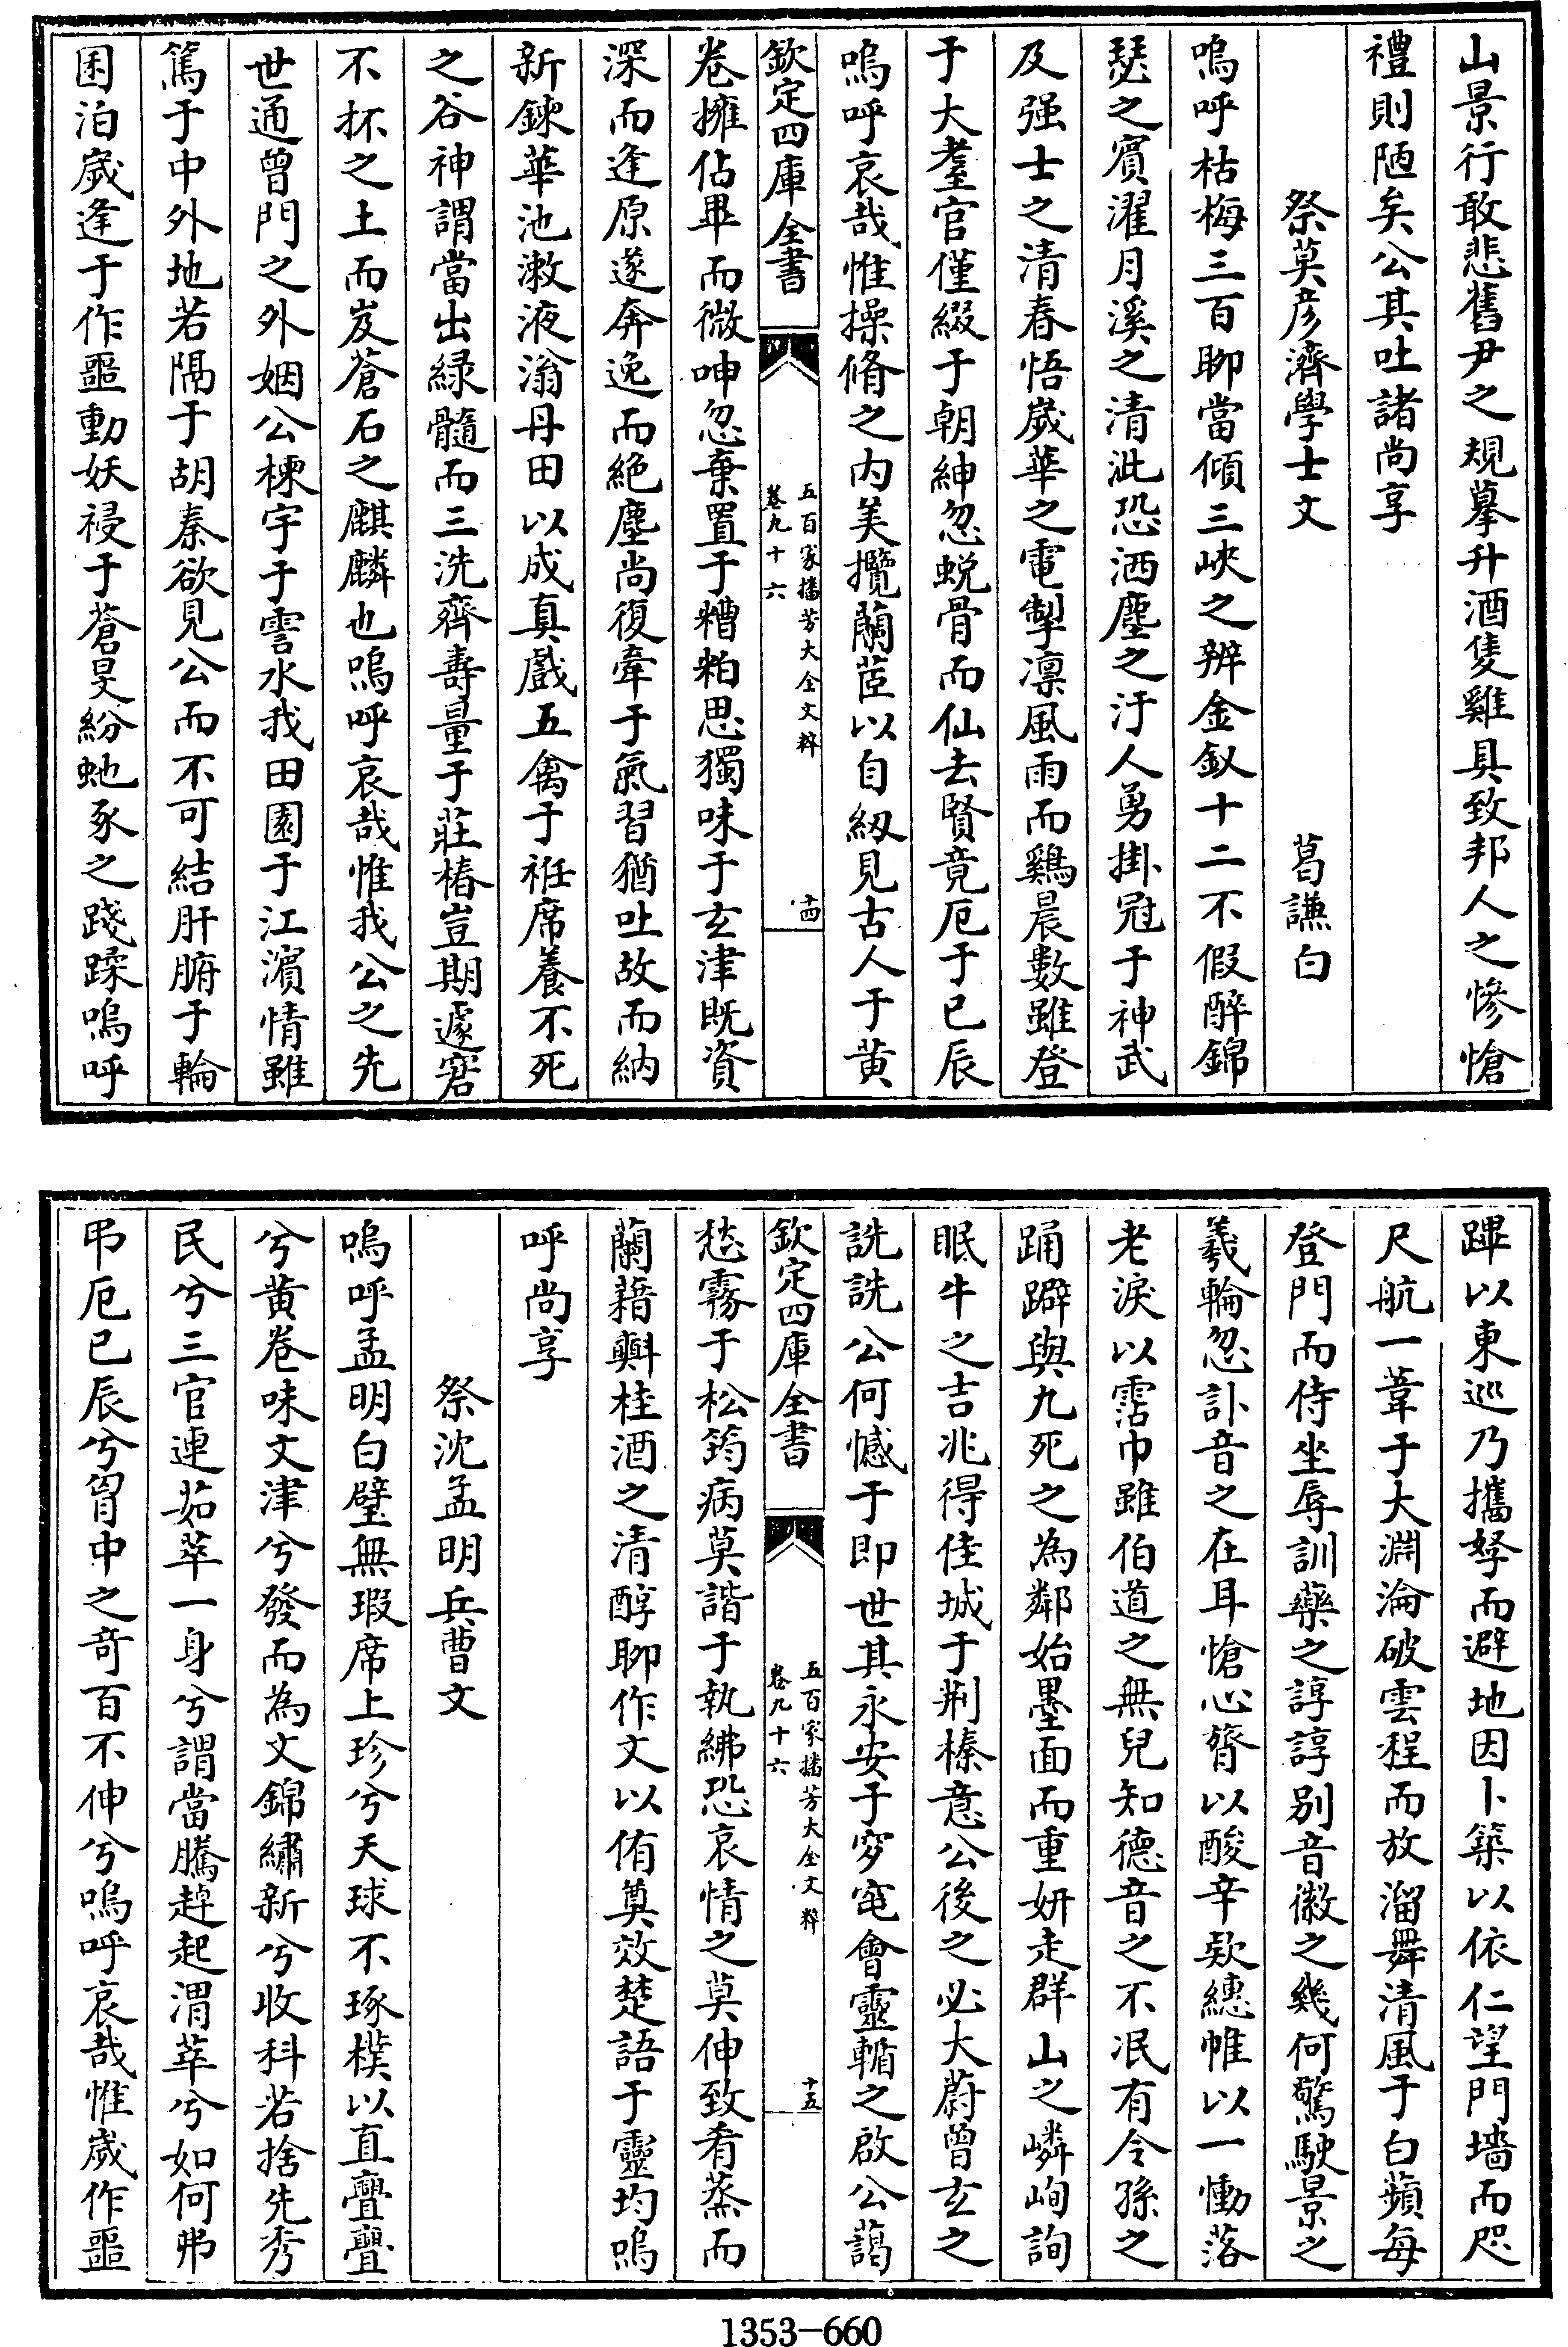 山景行敢悲舊尹之規摹升酒隻雞具致邦人之慘愴
禮則陋矣公其吐諸尚享
祭莫彥濟學士文　葛謙白
嗚呼枯梅三百聊當傾三峽之辨金釵十二不假醉錦
瑟之賓濯月溪之清泚恐洒塵之汙人勇掛冠于神武
及强士之清春悟嵗華之電掣凛風雨而鷄晨數雖登
于大耋官僅綴于朝紳忽蜕骨而仙去賢竟厄于已辰
嗚呼哀哉惟操脩之内美攬蘭茝以自紉見古人于黄
欽定四庫全書
五百家播芳大全文粹
卷九十六
十四
卷擁佔畢而微呻忽棄置于糟粕思獨味于玄津既資
深而逢原遂奔逸而絶塵尚復牽于氣習猶吐故而納
新鍊華池潄液滃丹田以成真戲五禽于袵席養不死
之谷神謂當出緑髓而三洗齊壽量于莊椿豈期遽窘
不抔之土而岌蒼石之麒麟也嗚呼哀哉惟我公之先
世通曾門之外姻公棟宇于霅水我田園于江濱情雖
篤于中外地若隔于胡秦欲見公而不可結肝腑于輪
囷泊嵗逢于作噩動妖祲于蒼旻紛虵豕之踐蹂嗚呼
蹕以東巡乃攜孥而避地因卜築以依仁望門墻而咫
尺航一葦于大淵淪破雲程而放溜舞清風于白蘋每
登門而侍坐辱訓藥之諄諄别音徽之幾何驚駛景之
羲輪忽訃音之在耳愴心膂以酸辛欵繐帷以一慟落
老淚以霑巾雖伯道之無兒知德音之不泯有令孫之
踊躃與九死之為鄰始墨面而重妍走群山之嶙峋詢
眠牛之吉兆得佳城于荆榛意公後之必大蔚曾玄之
詵詵公何憾于即世其永安于穸窀會靈輴之啟公藹
欽定四庫全書
五百家播芳大全文粹
卷九十六
十五
愁霧于松筠病莫諧于執紼恐哀情之莫伸致肴蒸而
蘭藉㪺桂酒之清醇聊作文以侑奠效楚語于靈均嗚
呼尚享
祭沈孟明兵曹文
嗚呼孟明白璧無瑕席上珍兮天球不琢樸以直亹亹
兮黄卷味文津兮發而為文錦繡新兮收科若捨先秀
民兮三官連茹萃一身兮謂當騰趠起渭莘兮如何弗
弔厄已辰兮胷中之奇百不伸兮嗚呼哀哉惟嵗作噩
1353—660